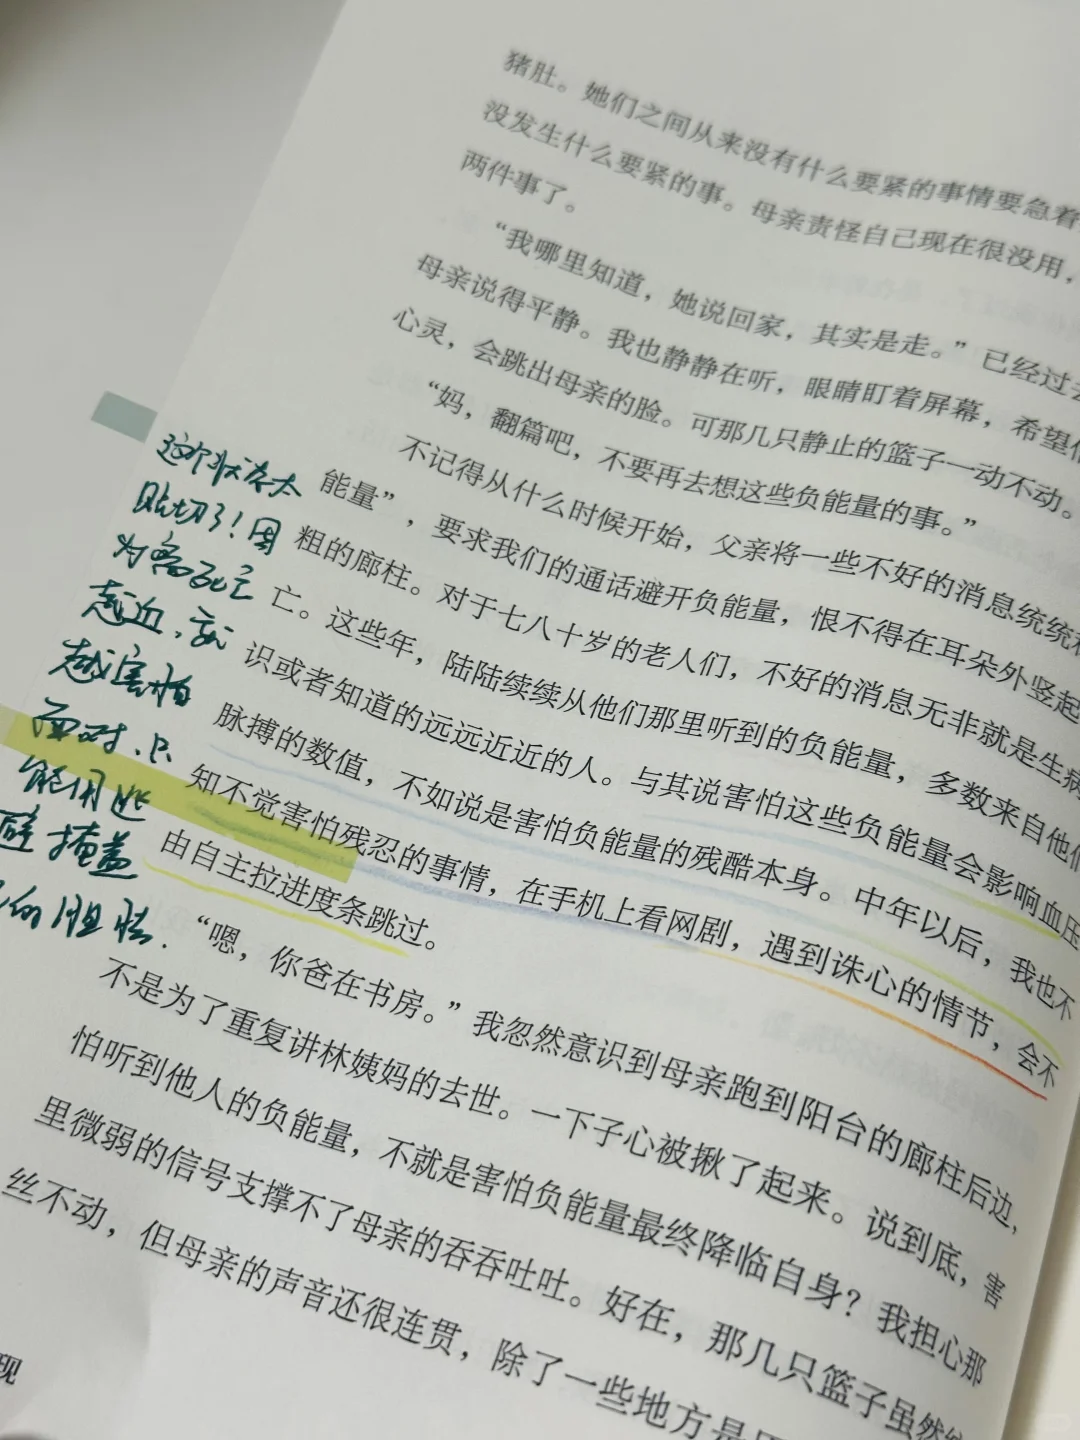 猪肚。她们之间从来没有什么要紧的事情要急着
没发生什么要紧的事。母亲责怪自己现在很没用，
两件事了。
“我哪里知道，她说回家，其实是走。”已经过去
母亲说得平静。我也静静在听，眼睛盯着屏幕，希望
心灵，会跳出母亲的脸。可那几只静止的篮子一动不动。
“妈，翻篇吧，不要再去想这些负能量的事。”
不记得从什么时候开始，父亲将一些不好的消息统统
能量”，要求我们的通话避开负能量，恨不得在耳朵外竖起
粗的廊柱。对于七八十岁的老人们，不好的消息无非就是生病
亡。这些年，陆陆续续从他们那里听到的负能量，多数来自他们
识或者知道的远远近近的人。与其说害怕这些负能量会影响血压
脉搏的数值，不如说是害怕负能量的残酷本身。中年以后，我也不
知不觉害怕残忍的事情，在手机上看网剧，遇到诛心的情节，会不
由自主拉进度条跳过。
“嗯，你爸在书房。”我忽然意识到母亲跑到阳台的廊柱后边，
不是为了重复讲林姨妈的去世。一下子心被揪了起来。说到底，害
怕听到他人的负能量，不就是害怕负能量最终降临自身？我担心那
里微弱的信号支撑不了母亲的吞吞吐吐。好在，那几只篮子虽然
丝不动，但母亲的声音还很连贯，除了一些地方是
现
这个状态太
贴切了！因
为离死亡
越近，就
越害怕
面对，只
能用逃
避掩盖
的胆怯.